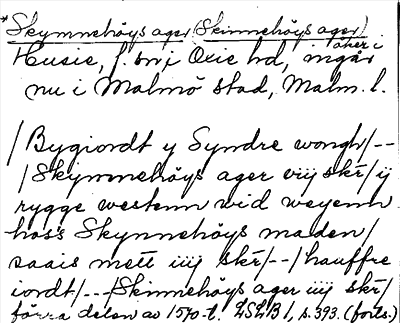 *Skymnehöys ager (Skinnehöys ager)
åker i
Husie, f. sn i Oxie hd, ingår
nu i Malmö stad, Malm. l.
/Bygiordt y Syndre wongh/--
/Skymnehöys ager viij skr/ ij
rygge westenn wid weyenn
hoss Skynnehöys maden/
saais mett iiij skr/--/hauffre
iordt/---/Skinnehöys ager iiij skr/
förra delen av 1570-t. LSLB 1, s. 393. (forts.)